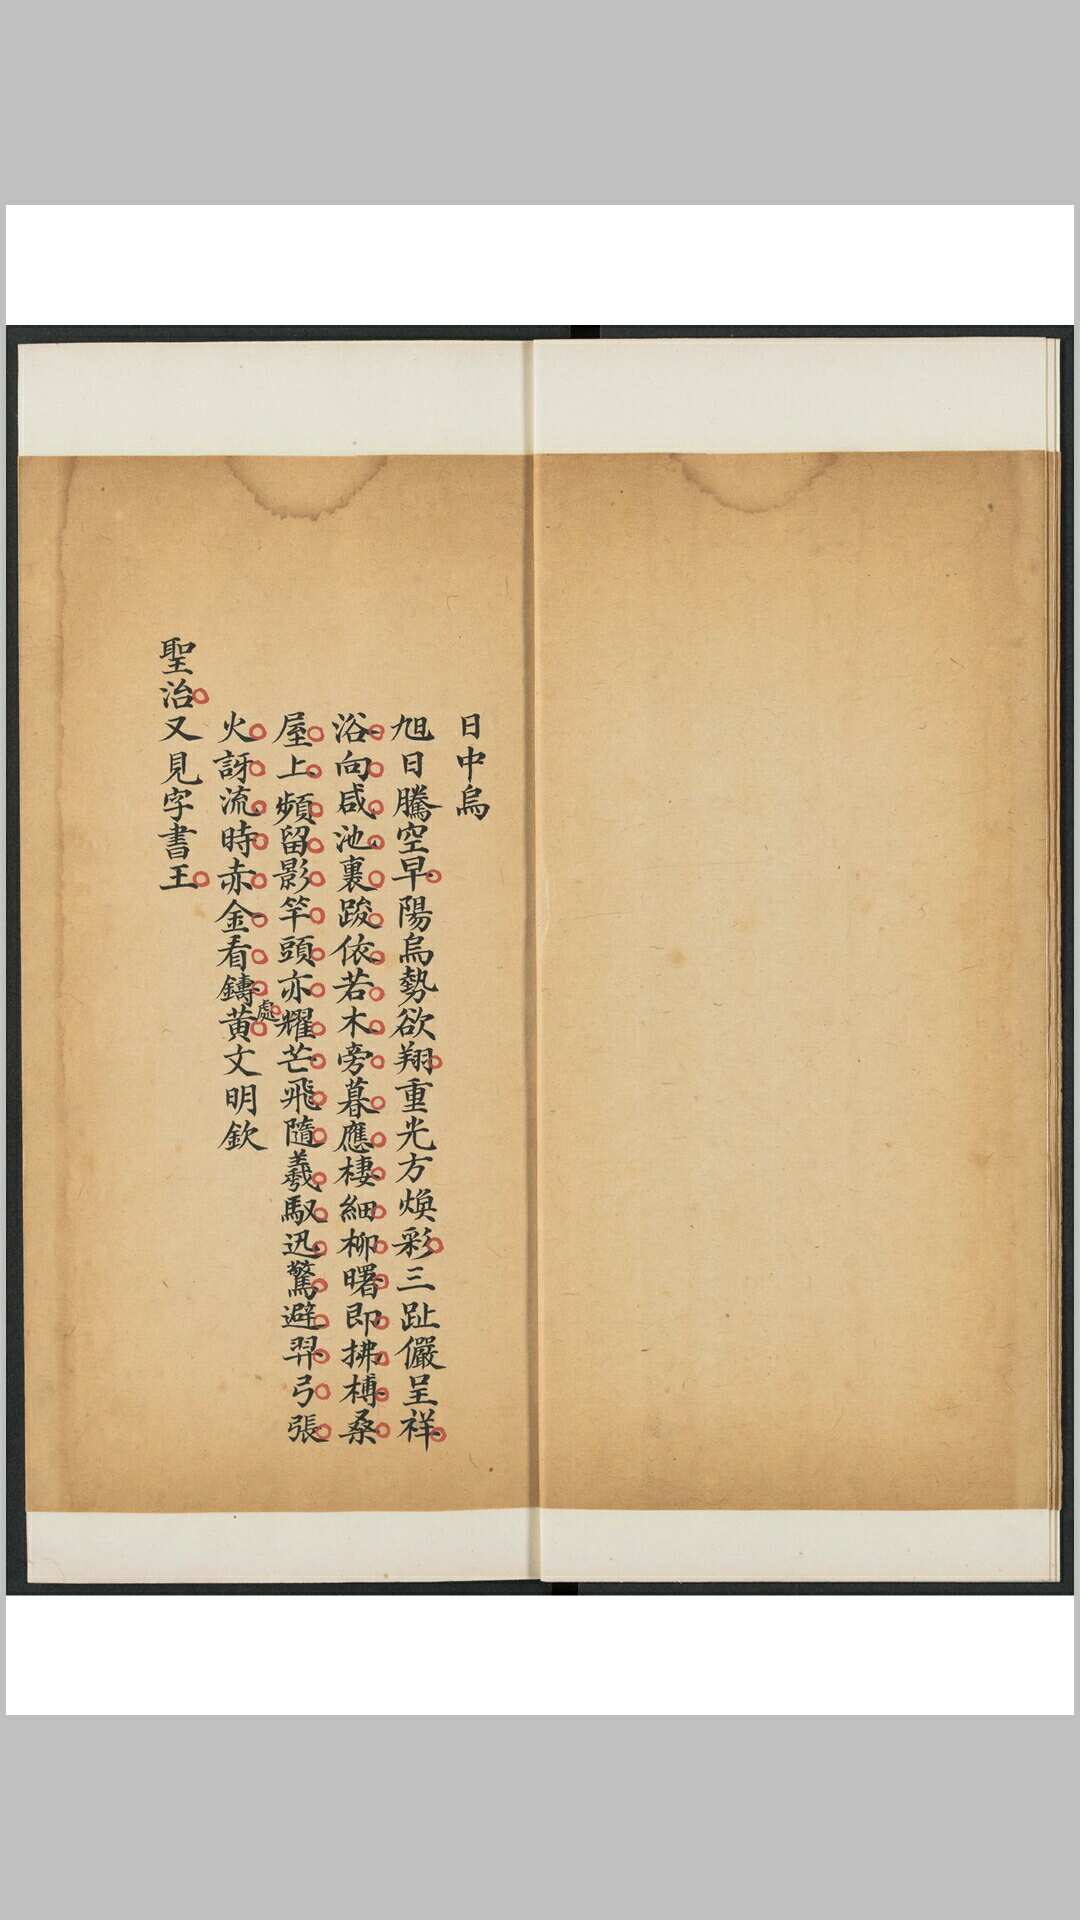 日中烏
旭日騰空早陽烏勢欲翔重光方煥彩三趾儼呈祥
浴向咸池裏踆依若木旁暮應棲細柳曙即拂榑桑
屋上頻留影竿頭亦耀芒飛隨羲馭迅驚避羿弓張
火訝流時赤金看鑄處黄文明欽
聖治又見字書王